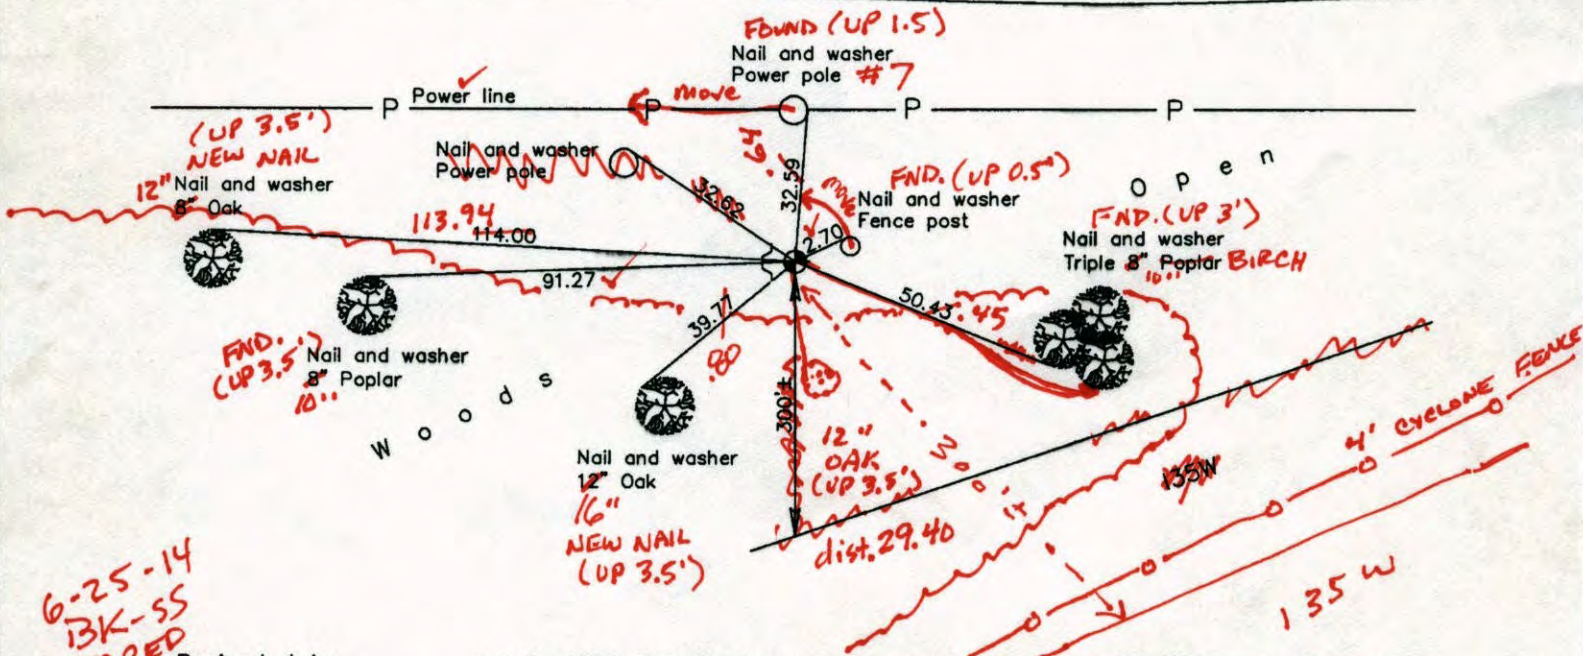 FOUND (UP 1.5)
Nail and washer
Power pole #7
Power line
P
P
move
P
P
(UP 3.5')
NEW NAIL
12" Nail and washer
8" Oak
Nail and washer
Power pole
32.62
32.59
move
FND. (UP 0.5')
Nail and washer
Fence post
2.70
Open
FND. (UP 3')
Nail and washer
Triple 8" Poplar BIRCH
10"
113.94
114.00
91.27
50.43
.45
39.77
.80
FND.
(UP 3.5')
Nail and washer
8" Poplar
10"
Woods
300'±
12"
OAK
(UP 3.5')
Nail and washer
12" Oak
16"
NEW NAIL
(UP 3.5')
dist. 29.40
135W
4' CYCLONE FENCE
135 W
6-25-14
BK-SS